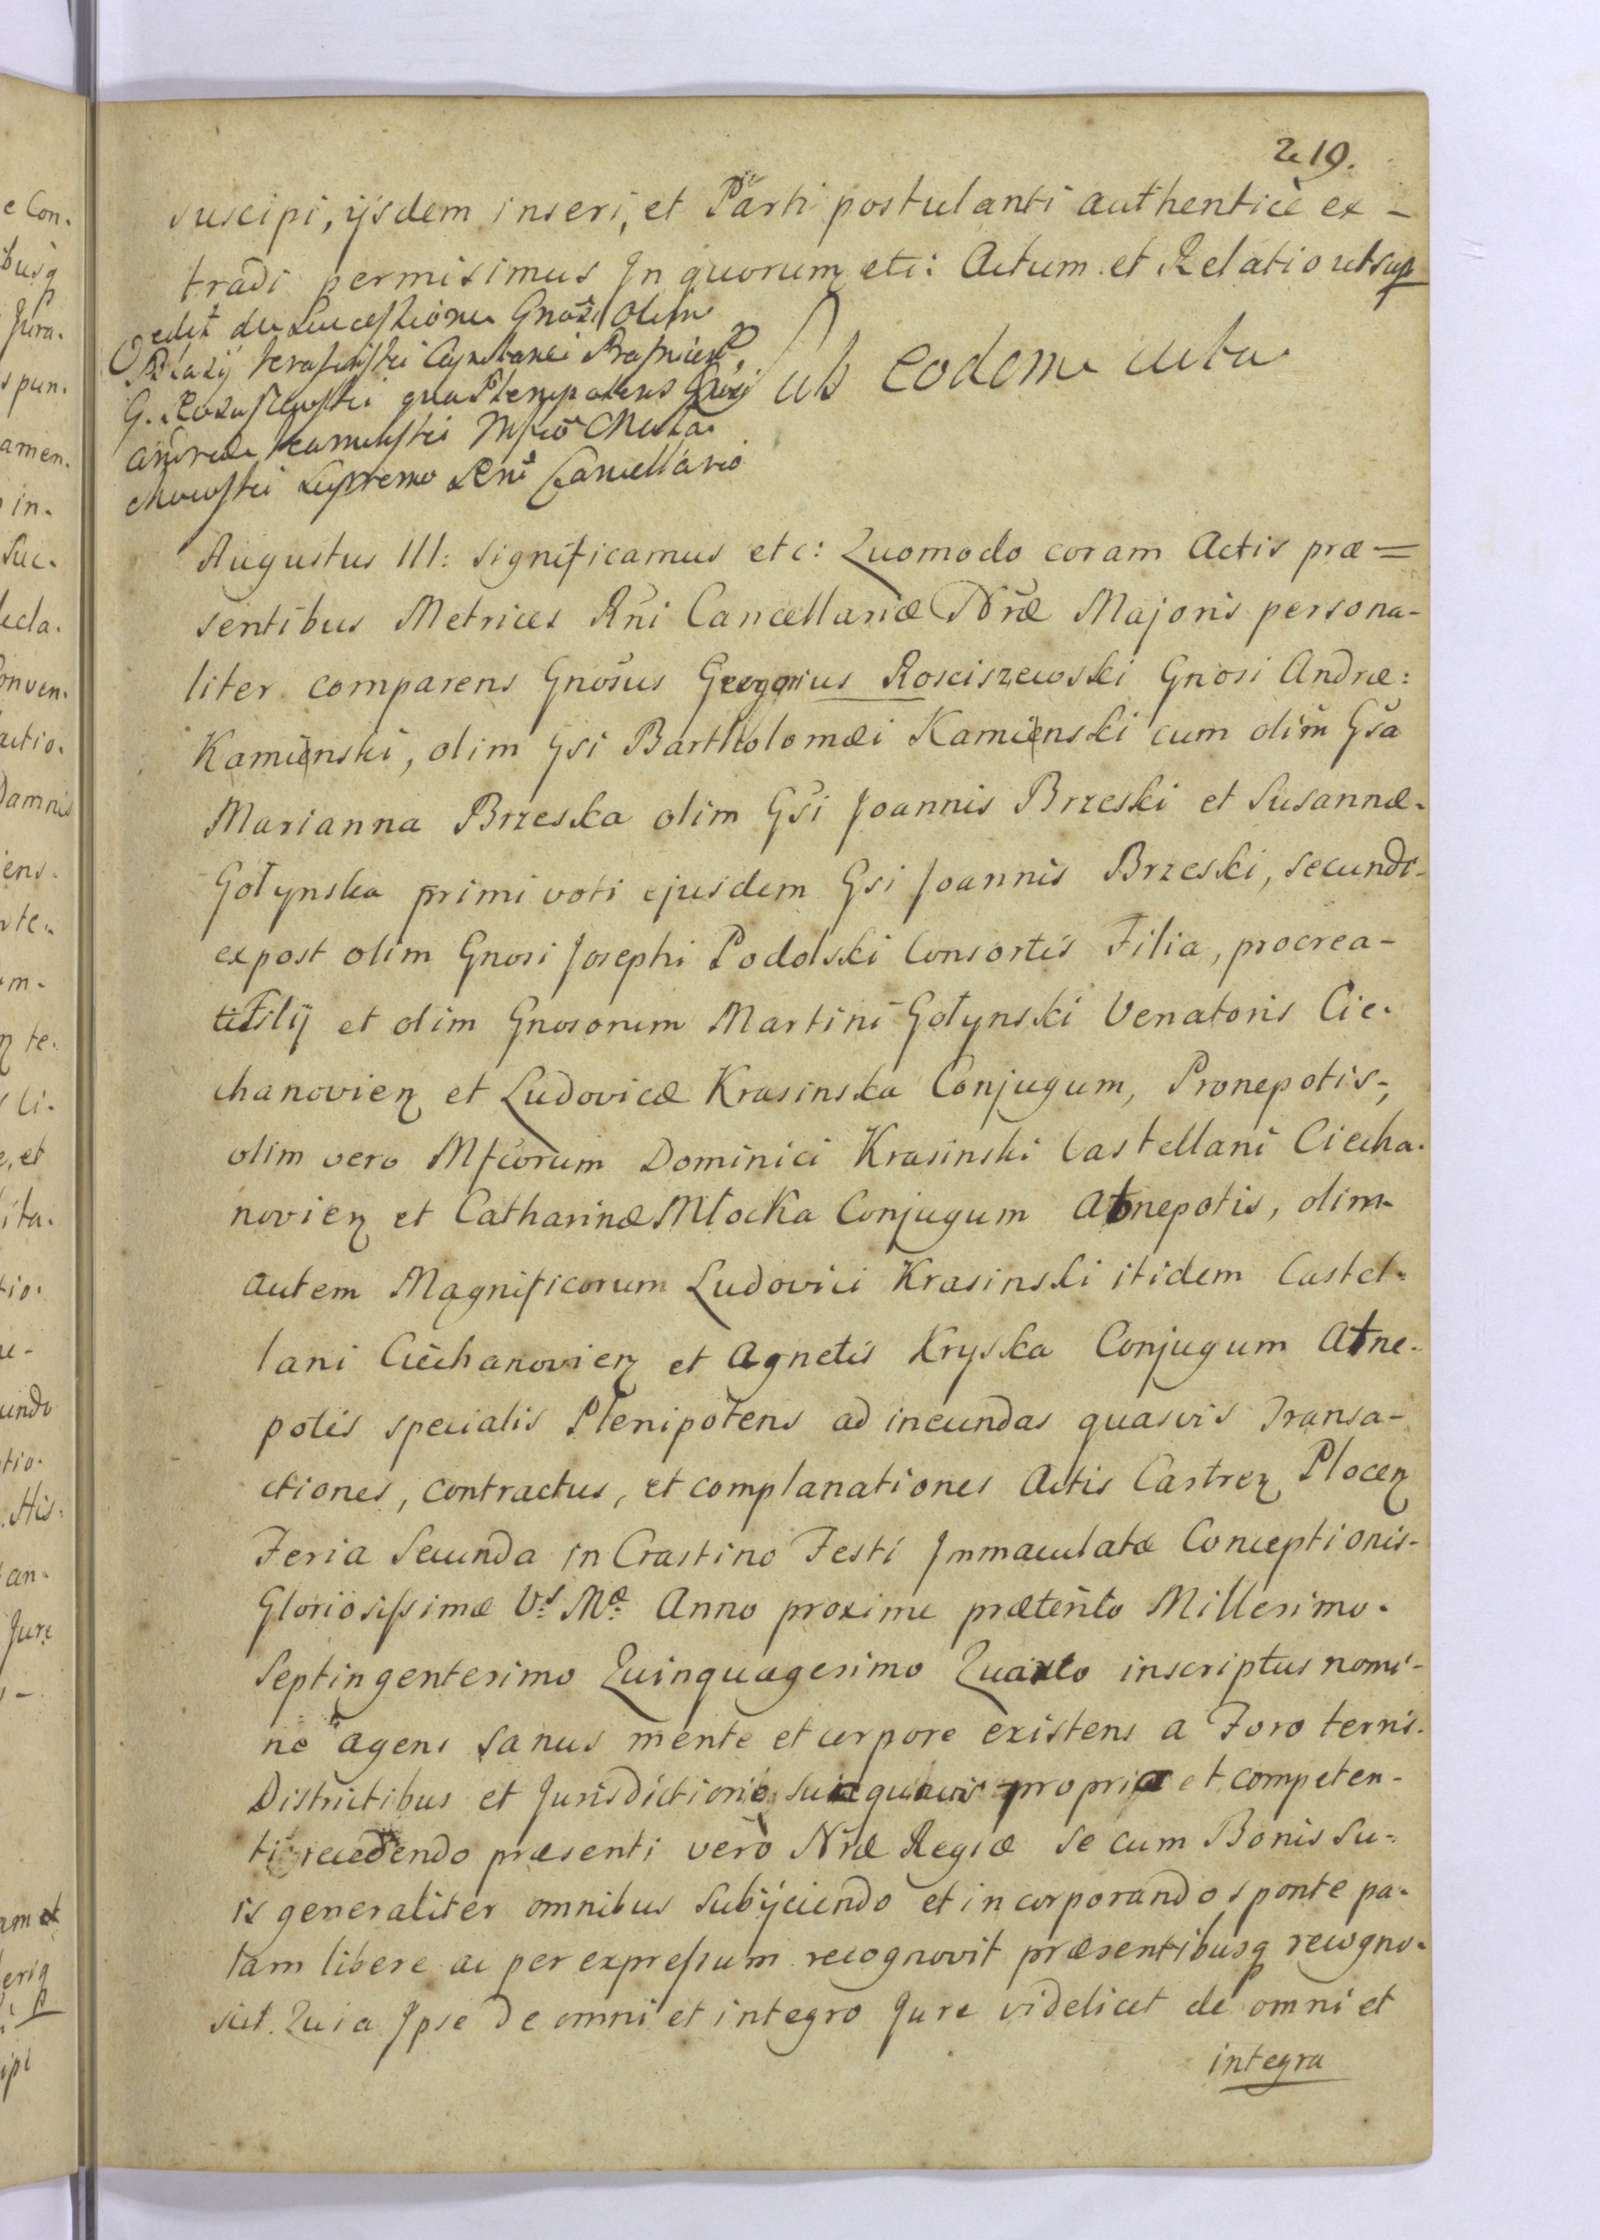 219.
suscipi, ijsdem inseri, et Parti postulanti authenticè ex-
tradi permisimus In quorum etc: Actum et Relatio ut sup
Cedit de Successione Gnosi olim
Blasij Krasinski
G. Rosciszewski qua Plenipotens Gnosi
Andreae Kamienski Mfco Mala-
chowski Supremo Rni Cancellario
Sub eodem actu
Augustus III: significamus etc: Quomodo coram Actis præ=
sentibus Metrices Rni Cancellariæ Nræ Majoris persona-
liter comparens Gnosus Gregorius Rosciszewski Gnosi Andræ:
Kamienski, olim Gsi Bartholomæi Kamienski cum olim Gsa
Marianna Brzeska olim Gsi Joannis Brzeski et Susannæ-
Gołynska primi voti ejusdem Gsi Joannis Brzeski, secundi-
expost olim Gnosi Josephi Podolski Consortis Filia, procrea-
ti Filij et olim Gnosorum Martini Gołynski Venatoris Cie-
chanovien et Ludovicæ Krasinska Conjugum, Pronepotis,
olim vero Mfcorum Dominici Krasinski Castellani Ciecha-
novien et Catharinæ Młocka Conjugum Abnepotis, olim
autem Magnificorum Ludovici Krasinski itidem Castel-
lani Ciechanovien et Agnetis Kryska Conjugum Atne-
potis specialis Plenipotens ad ineundas quasvis Transa-
ctiones, contractus, et complanationes Actis Castren Plocen
Feria Secunda in Crastino Festi Immaculatæ Conceptionis-
Gloriosissimæ Vs Mæ Anno proxime præterito Millesimo-
Septingentesimo Quinquagesimo Quarto inscriptus nomi-
ne agens sanus mente et corpore existens a Foro terris-
Districtibus et Jurisdictione sua quavis propria et competen-
ti recedendo præsenti verò Nræ Regiæ se cum Bonis su-
is generaliter omnibus subijciendo et incorporando sponte pa-
lam libere ac per expressum recognovit præsentibusq recogno-
scit. Quia Ipse de omni et integro Jure videlicet de omni et
integra